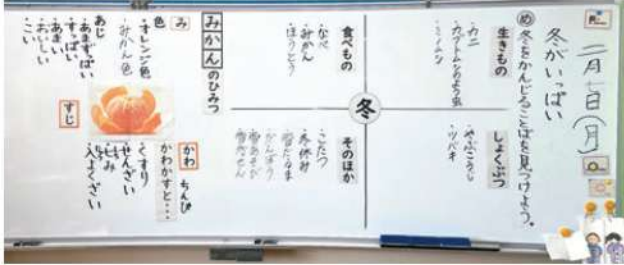 二月七日(月)
冬がいっぱい
め 冬をかんじることばを見つけよう。
生きもの
・カニ
・カブトムシのよう虫
しょくぶつ
・やぶこうじ
・ツバキ
冬
食べもの
・なべ
・みかん
・ほうとう
そのほか
・こたつ
・冬休み
・雪だるま
・かんぼう
・雪あそび
・雪がっせん
みかんのひみつ
み
色
・オレンジ色
・みかん色
あじ
・あまずっぱい
・すっぱい
・あまい
・おいしい
・こい
すじ
かわ
ちんぴ
かわかすと・・・
くすり
せんざい
しちみ
入よくざい